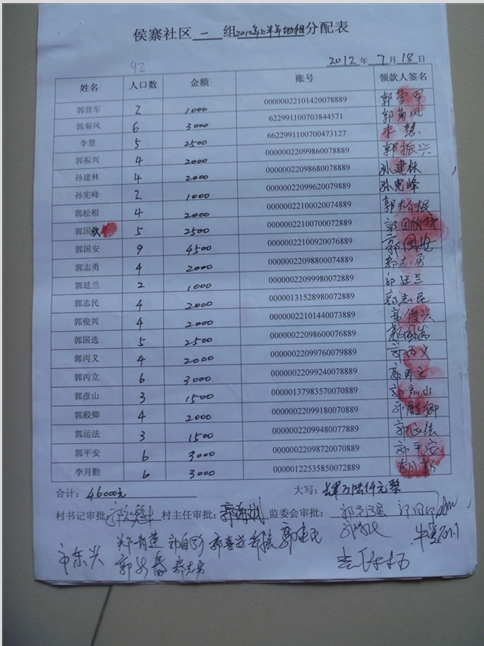 侯寨社区一组2012年上半年地租分配表
2012年7月18日
92
姓名 人口数 金额 账号 领款人签名
郭营军 2 1000 00000022101420078889 郭营军
郭菊凤 6 3000 622991100703844571 郭菊凤
李慧 5 2500 6622991100700473127 李慧
郭振兴 4 2000 00000022099860078889 郭振兴
孙建林 4 2000 00000022098680078889 孙建林
孙宪峰 2 1000 00000022099620079889 孙宪峰
郭松根 4 2000 00000022100020074889 郭松根
郭国欣 5 2500 00000022100700072889 郭国欣
郭国安 9 4500 00000022100920076889 郭国安
郭志勇 4 2000 00000022098800074889 郭志勇
郭廷兰 2 1000 00000022099980072889 郭廷兰
郭志民 4 2000 00000131528980072889 郭志民
郭俊兴 4 2000 00000022101440073889 郭俊兴
郭国选 5 2500 00000022098600076889 郭国选
郭丙义 4 2000 00000022099760079889 郭丙义
郭丙立 6 3000 00000022099240078889 郭丙立
郭彦山 3 1500 00000137983570070889 郭彦山
郭殿卿 4 2000 00000022099180070889 郭殿卿
郭运法 3 1500 00000022099480077889 郭运法
郭平安 6 3000 00000022098720070889 郭平安
李月勤 6 3000 00000122535850072889
合计：46000元 大写：肆万陆仟元整
村书记审批: 村主任审批: 监委会审批: